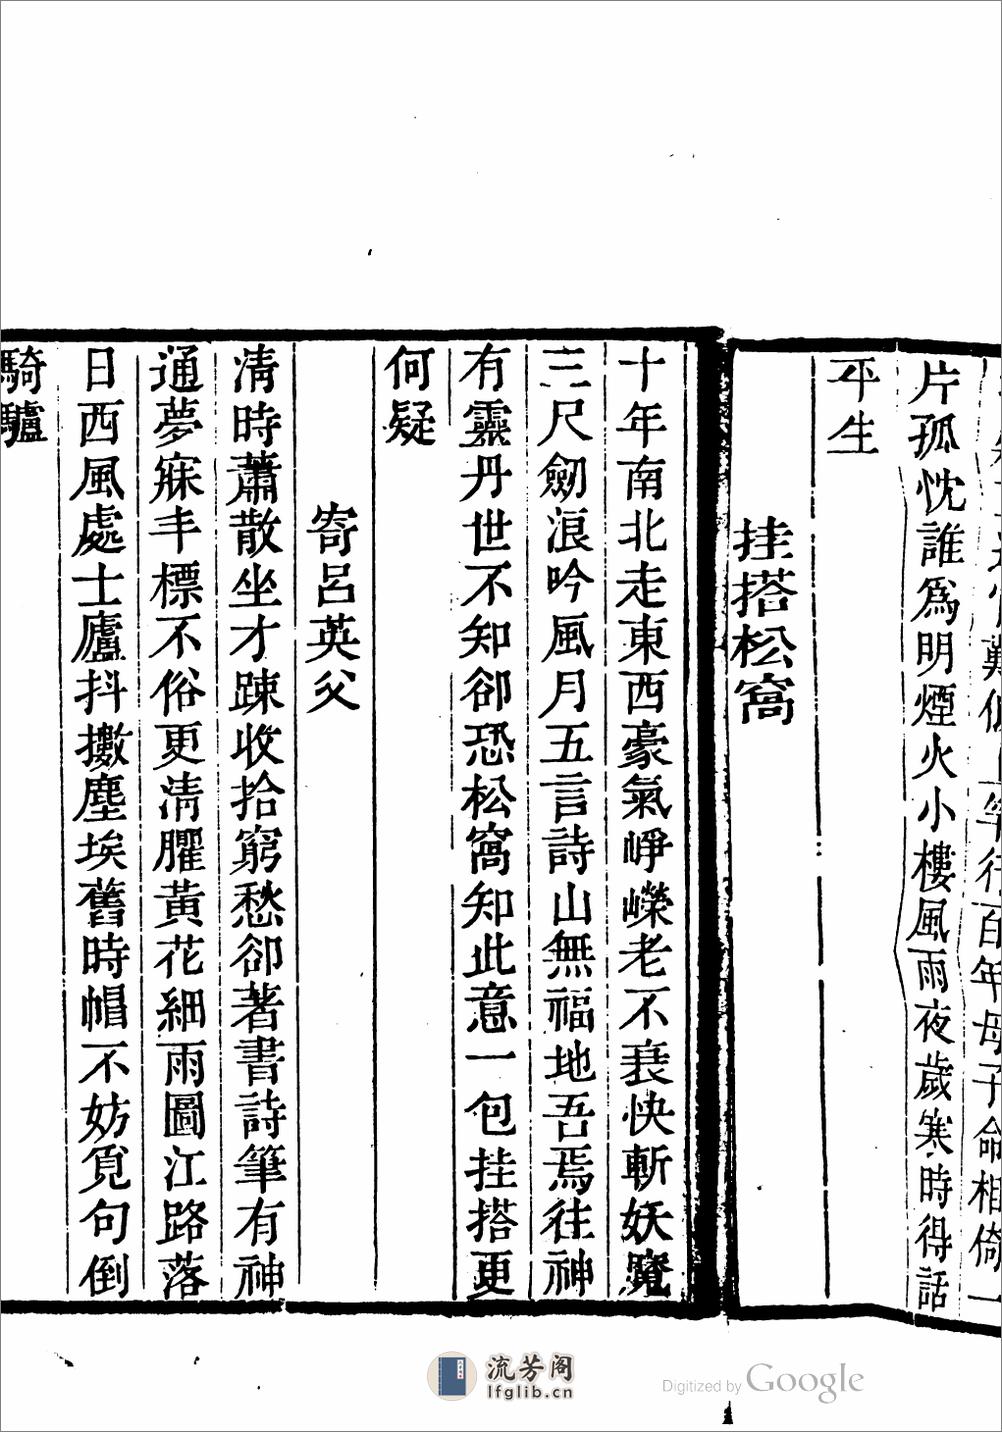 難但
等行百年母子命相倚一
片孤忱誰爲明煙火小樓風雨夜歲寒時得話
平生
挂搭松窩
十年南北走東西豪氣崢嶸老不衰快斬妖魔
三尺劒浪吟風月五言詩山無福地吾焉往神
有靈丹世不知卻恐松窩知此意一包挂搭更
何疑
寄呂英父
清時蕭散坐才踈收拾窮愁卻著書詩筆有神
通夢寐丰標不俗更清臞黃花細雨圖江路落
日西風處士廬抖擻塵埃舊時帽不妨覓句倒
騎驢
流芳阁
lfglib.cn
Digitized by Google